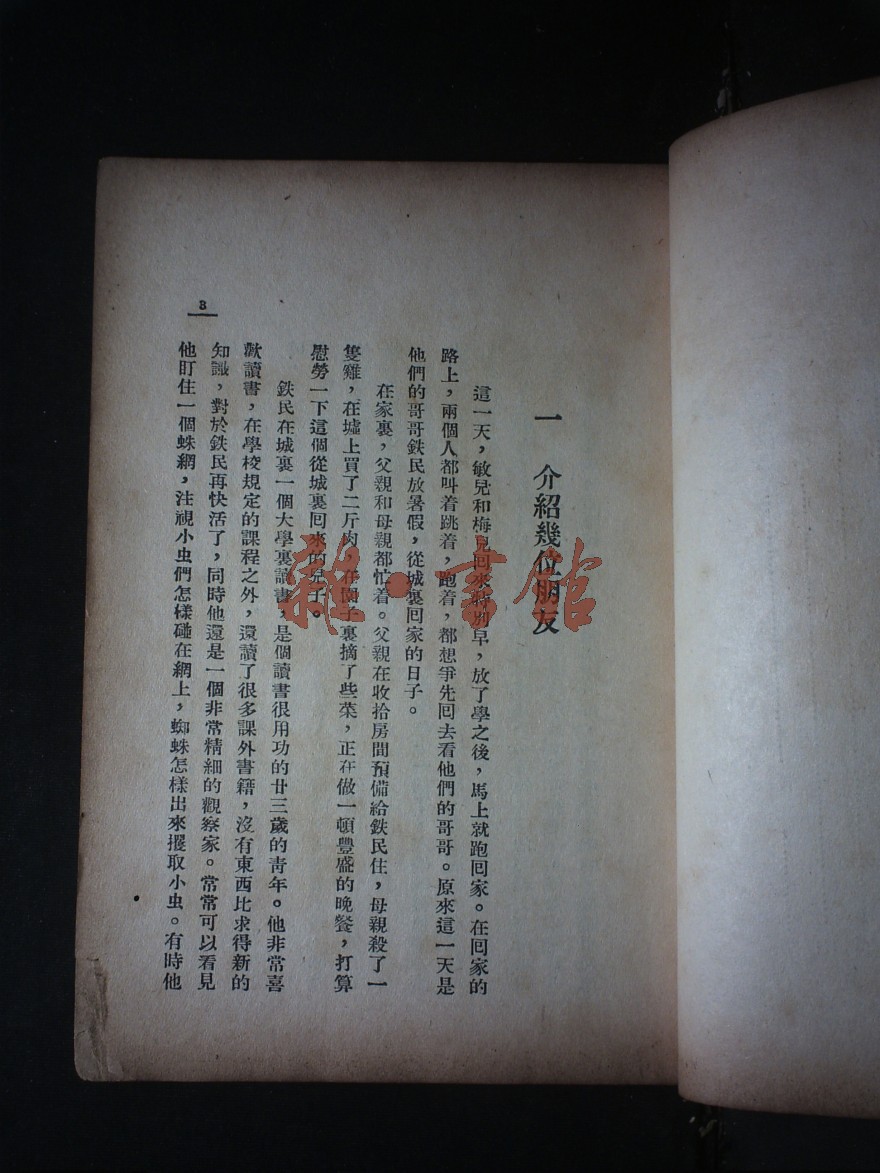 一　介紹幾位朋友
這一天，敏兒和梅兒回來特別早，放了學之後，馬上就跑囘家。在囘家的
路上，兩個人都叫着跳着，跑着，都想爭先囘去看他們的哥哥。原來這一天是
他們的哥哥鉄民放暑假，從城裏囘家的日子。
在家裏，父親和母親都忙着。父親在收拾房間預備給鉄民住，母親殺了一
隻雞，在墟上買了二斤肉，在園子裏摘了些菜，正在做一頓豐盛的晚餐，打算
慰勞一下這個從城裏囘來的兒子。
鉄民在城裏一個大學裏讀書，是個讀書很用功的廿三歲的靑年。他非常喜
歡讀書，在學校規定的課程之外，還讀了很多課外書籍，沒有東西比求得新的
知識，對於鉄民再快活了，同時他還是一個非常精細的觀察家。常常可以看見
他盯住一個蛛網，注視小虫們怎樣碰在網上，蜘蛛怎樣出來攫取小虫。有時他
3
雜·書館